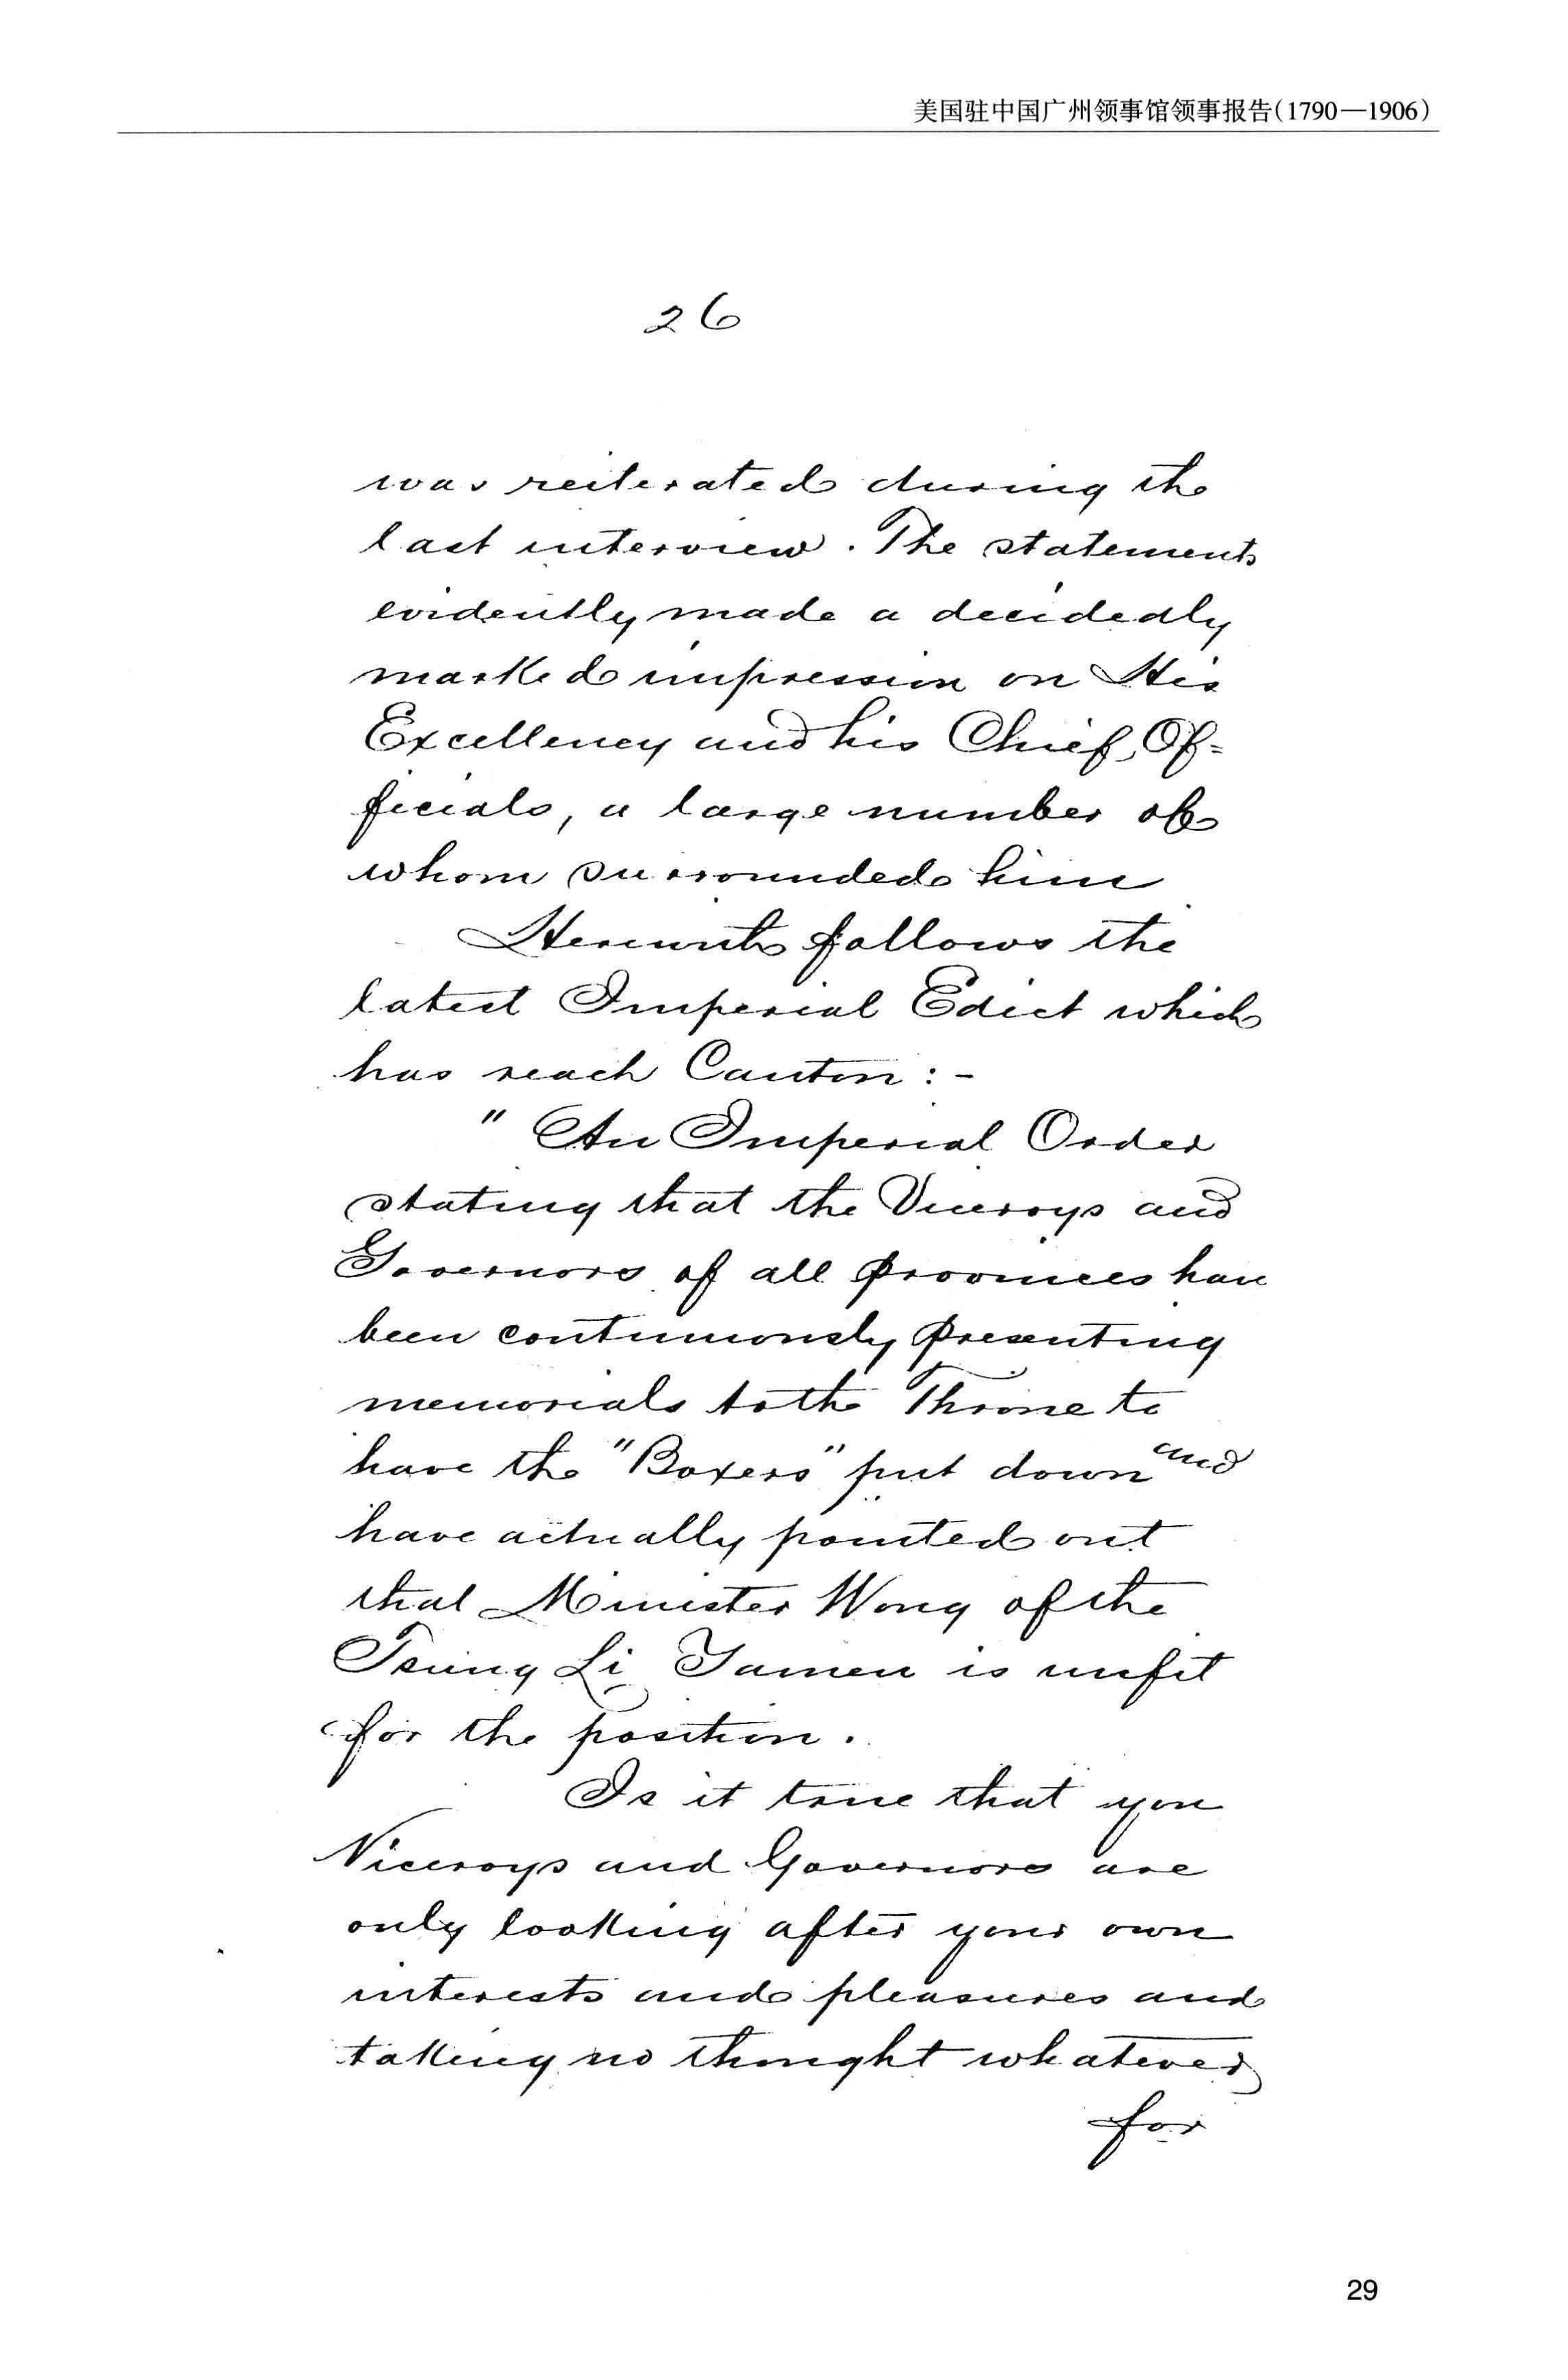 美国驻中国广州领事馆领事报告(1790—1906)
26
was reiterated during the
last interview. The statements
evidently made a decidedly
marked impression on His
Excellency and his Chief Of-
ficials, a large number of
whom surrounded him
Herewith follows the
latest Imperial Edict which
has reach Canton:-
"An Imperial Order
stating that the Viceroys and
Governors of all provinces have
been continuously presenting
memorials to the Throne to
have the "Boxers" put down and
have actually pointed out
that Minister Wong of the
Tsung Li Yamen is unfit
for the position.
Is it true that you
Viceroys and Governors are
only looking after your own
interests and pleasures and
taking no thought whatever
for
29